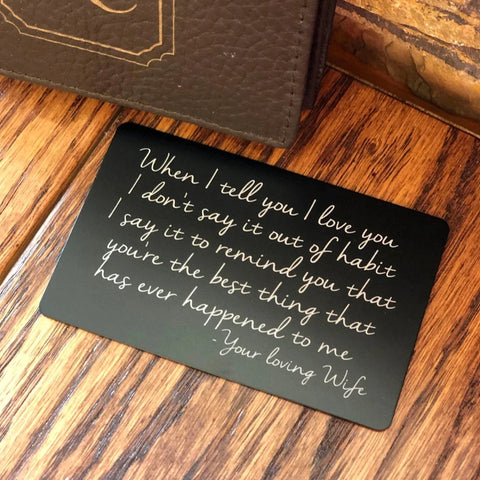 When I tell you I love you
I don't say it out of habit
I say it to remind you that
you're the best thing that
has ever happened to me
- Your loving Wife